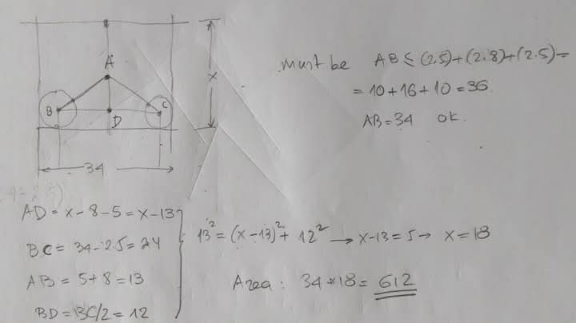 A
must be AB ≤ (2.5)+(2.8)+(2.5)=
= 10+16+10=36
AB=34 ok.
x
B
C
D
34
AD = x-8-5=x-13
BC = 34-2.5=24
AB = 5+8=13
BD=BC/2=12
13²=(x-13)²+12² → x-13=5 → x=18
Area: 34*18=612